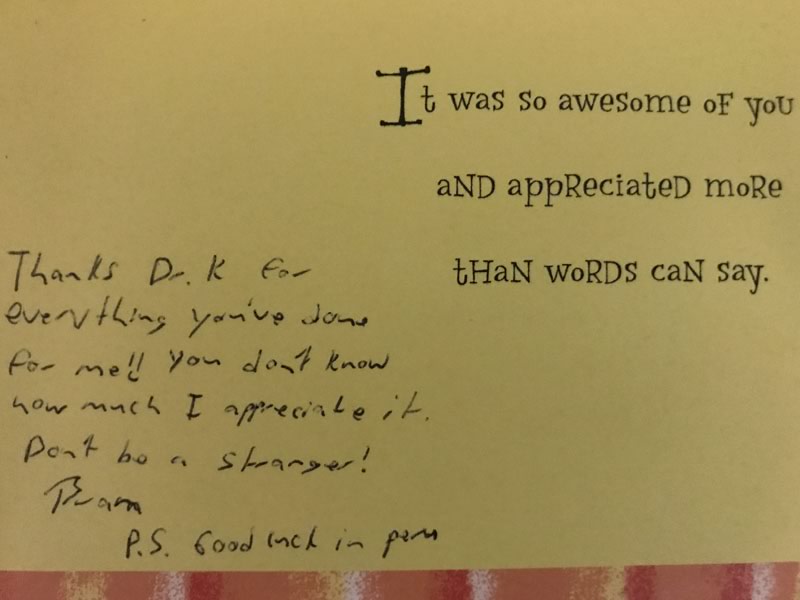 It was so awesome of you
aND appReciateD moRe
tHaN woRDS caN say.
Thanks Dr. K for
everything you've done
for me!! You don't know
how much I appreciate it.
Don't be a stranger!
Bram
P.S. Good luck in penn